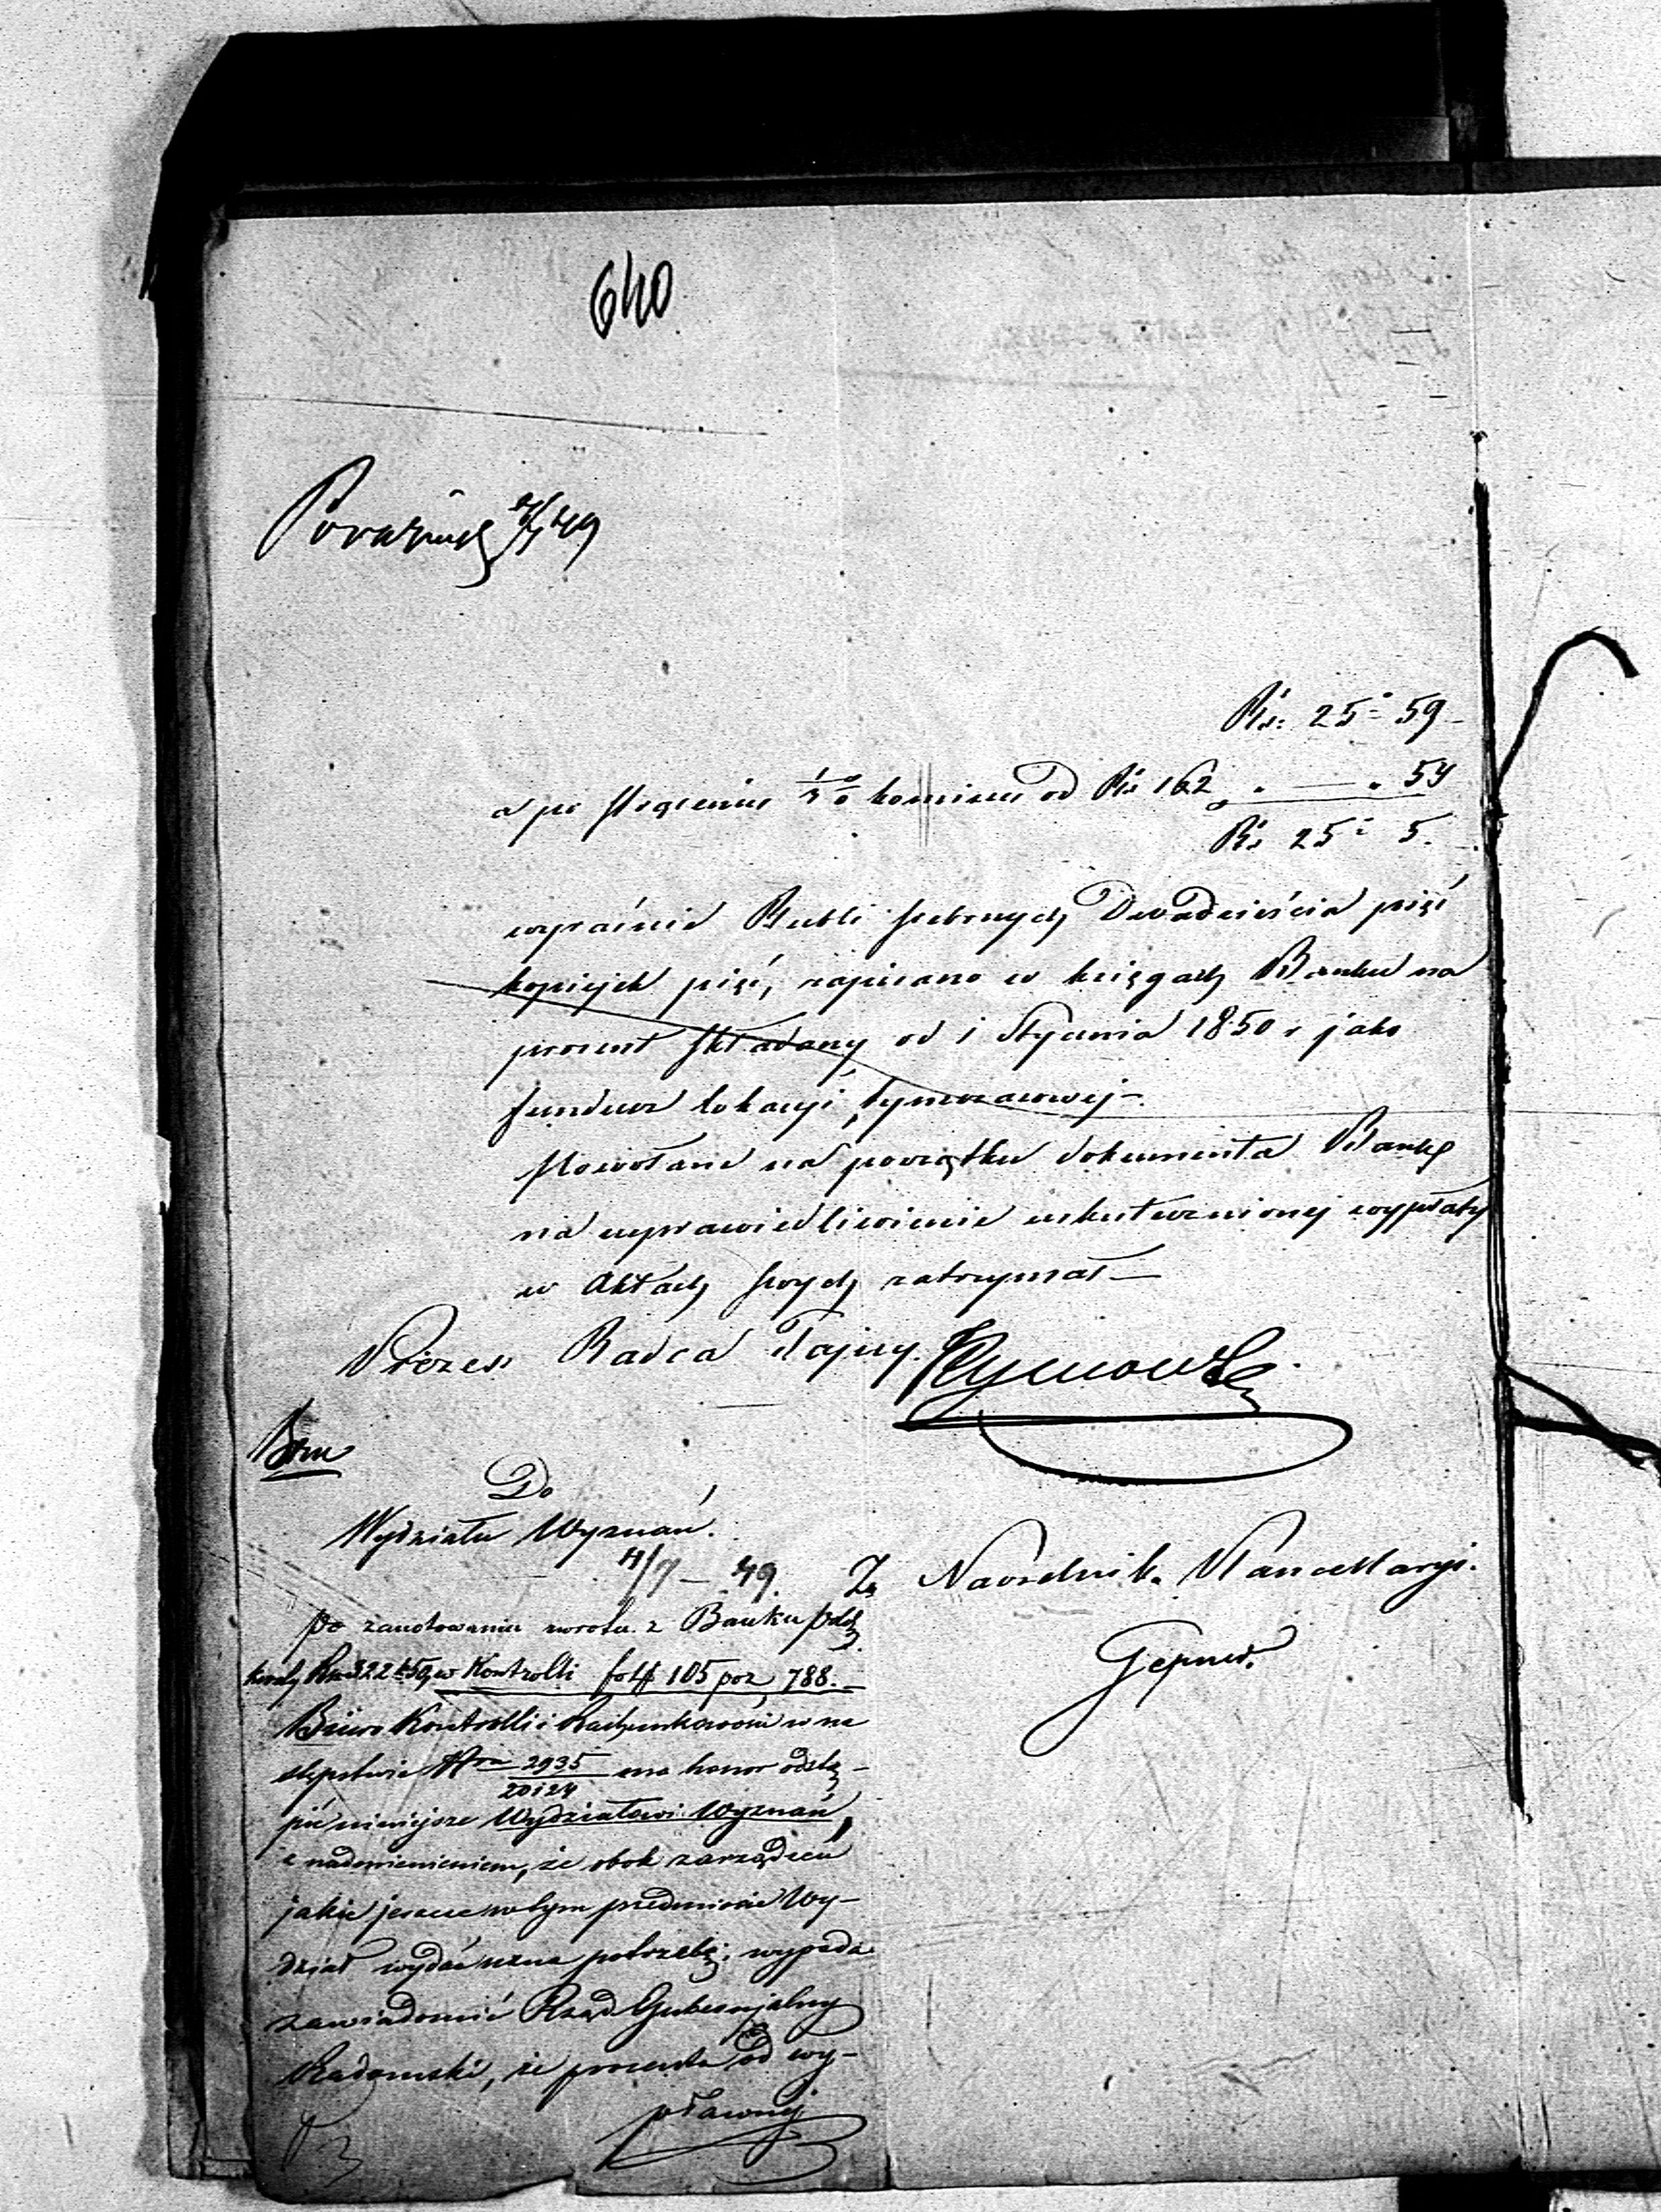 640
49
Rs: 25 = 59 –
a po strąceniu 1/3 % komisu od Rs 162 „ — „ 54
Rs 25 = 5.
wyraźnie Rubli srebrnych Dwadzieścia pięć
kopiejek pięć, zapisano w księgach Banku na
procent składany od 1 Stycznia 1850 r jako
fundusz lokacyi tymczasowej –.
Powołane na początku dokumenta Bank
na usprawiedliwienie uskutecznionej wypłaty
w Aktach swych zatrzymał —
Prezes Radca Tajny. Tymowski
Do
Wydziału Wyznań.
4/7 – 49. Za Naczelnika Kancellaryi.
po zanotowaniu zwrotu z Banku
Gepner.
w Kontrolli fol 105 poz 788. –
Biuro Kontrolli i Rachunkowości w na
stępstwie Nru 2935/20124 ma honor odstą –
pić niniejsze Wydziałowi Wyznań,
z nadmienieniem, że obok zarządzeń
jakie jeszcze w tym przedmiocie Wy –
dział wydać uzna potrzebę; wypada
zawiadomić Rząd Gubernjalny
Radomski, że procenta od wy –
płaconej